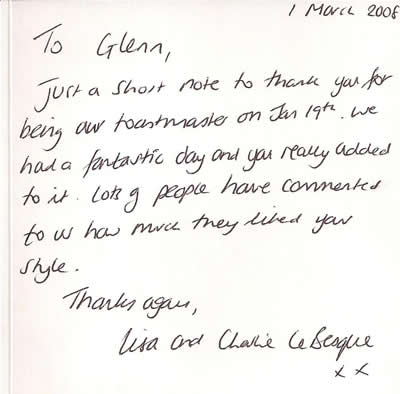 1 March 2008
To Glenn,
Just a short note to thank you for
being our toastmaster on Jan 19th. We
had a fantastic day and you really added
to it. Lots of people have commented
to us how much they liked your
style.
Thanks again,
Lisa and Charlie LeBesque
x x